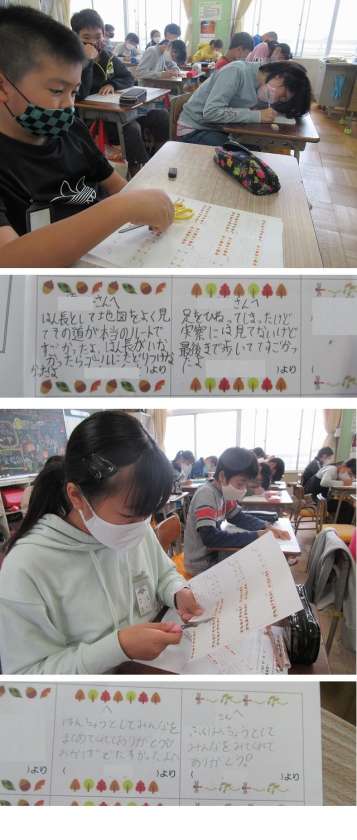 さんへ
はん長として地図をよく見
てその道が本当のルートで
すごかったよ。はん長がいな
かったらゴールにたどりつけな
かったよ
)より
さんへ
足をひねってしまったけど
実察には見てないけど
最後まで歩いててすごかっ
たよ
)より
へ
はんちょうとしてみんなを
まとめてくれてありがとう
おかげでたすかったよ
(
)より
さんへ
ふくはんちょうとして
みんなをみてくれて
ありがとう
(
)より